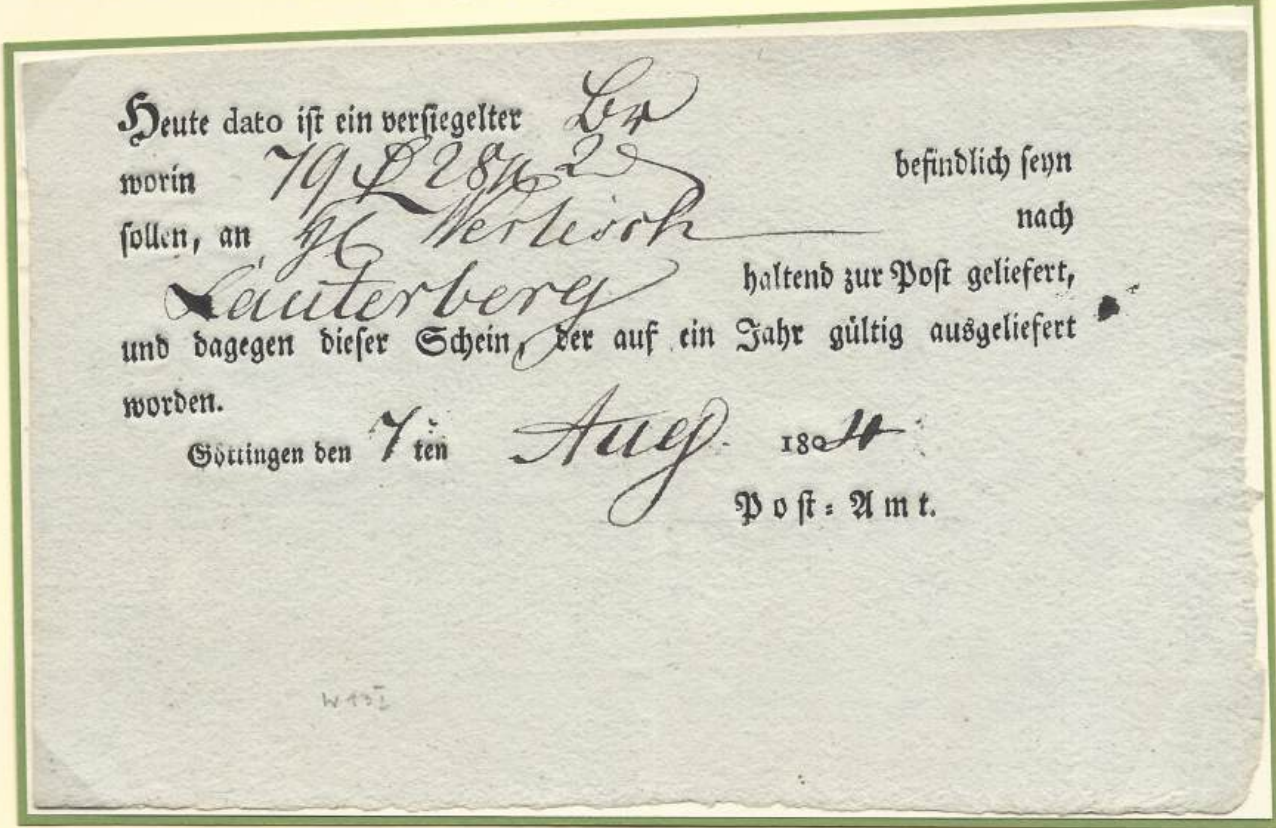 Heute dato ist ein versiegelter Br
worin 79 ₰ 28 2 befindlich seyn
sollen, an nach
Lauterberg haltend zur Post geliefert,
und dagegen dieser Schein, der auf ein Jahr gültig ausgeliefert
worden.
Göttingen den 7 ten Aug. 1804
Post-Amt.